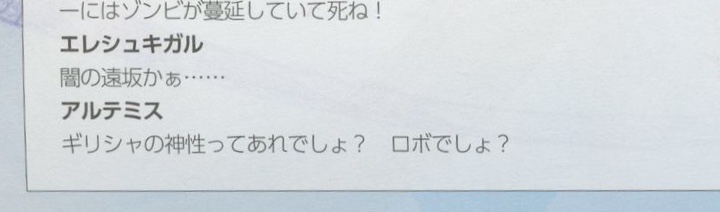 ーにはゾンビが蔓延していて死ね！
エレシュキガル
闇の遠坂かぁ……
アルテミス
ギリシャの神性ってあれでしょ？　ロボでしょ？